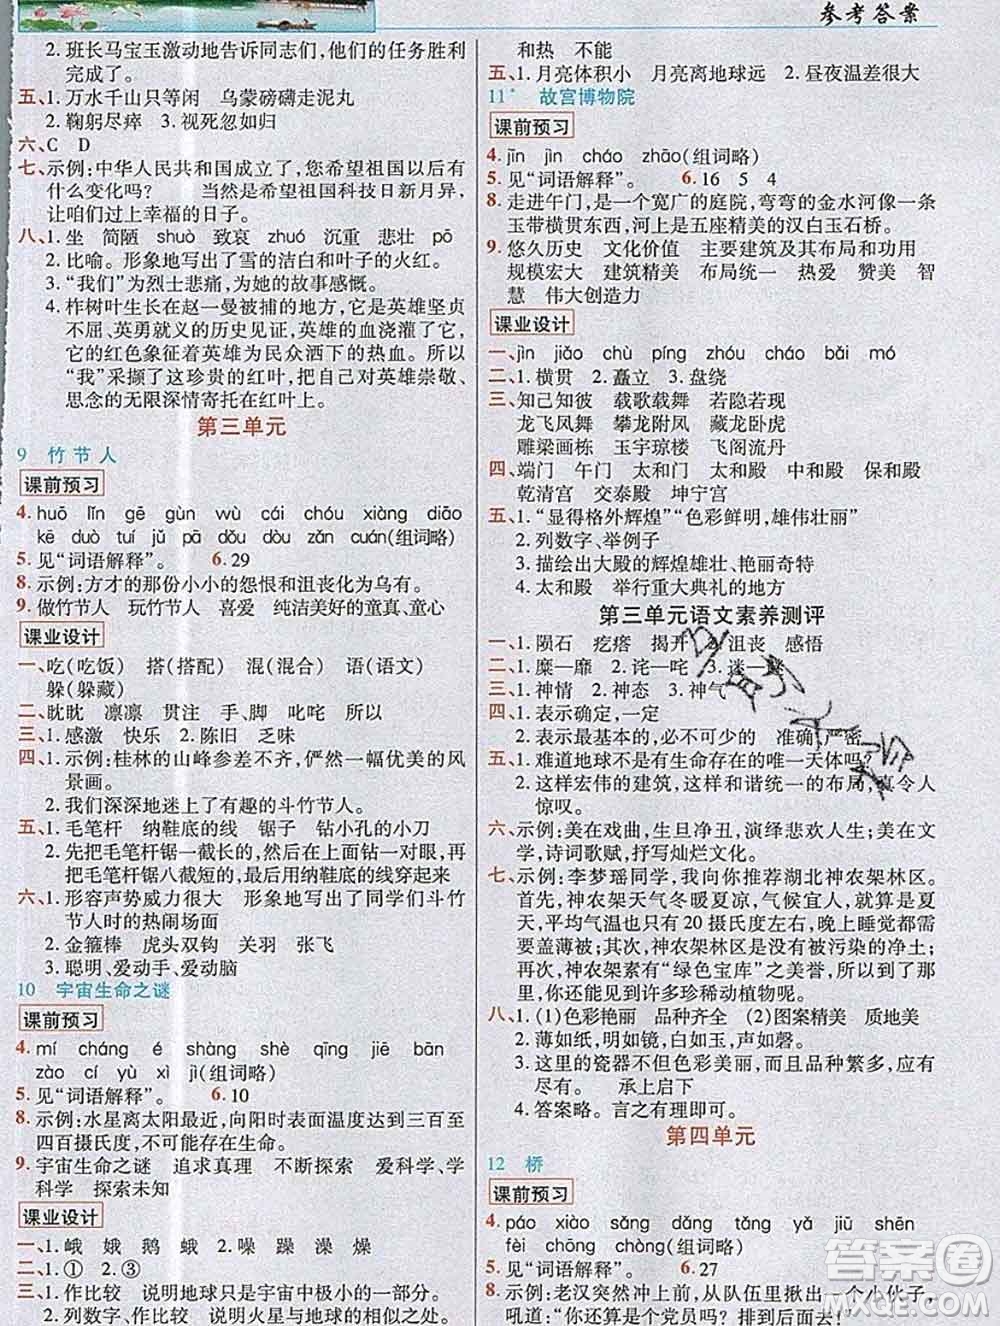 参考答案
2. 班长马宝玉激动地告诉同志们,他们的任务胜利
完成了。
五、1. 万水千山只等闲 乌蒙磅礴走泥丸
2. 鞠躬尽瘁 3. 视死忽如归
六、C D
七、示例:中华人民共和国成立了,您希望祖国以后有
什么变化吗? 当然是希望祖国科技日新月异,
让咱们过上幸福的日子。
八、1. 坐 简陋 shuò 致哀 zhuó 沉重 悲壮 pō
2. 比喻。形象地写出了雪的洁白和叶子的火红。
3. “我们”为烈士悲痛,为她的故事感慨。
4. 柞树叶生长在赵一曼被捕的地方,它是英雄坚贞
不屈、英勇就义的历史见证,英雄的血浇灌了它,
它的红色象征着英雄为民众洒下的热血。所以
“我”采撷了这珍贵的红叶,并把对英雄崇敬、
思念的无限深情寄托在红叶上。
第三单元
9 竹节人
课前预习
4. huō lǐn gē gùn wù cái chóu xiàng diāo
kē duò tuí jǔ pā dǒu dòu zǎn cuán(组词略)
5. 见“词语解释”。 6. 29
8. 示例:方才的那份小小的怨恨和沮丧化为乌有。
9. 做竹节人 玩竹节人 喜爱 纯洁美好的童真、童心
课业设计
一、吃(吃饭) 搭(搭配) 混(混合) 语(语文)
躲(躲藏)
二、眈眈 凛凛 贯注 手、脚 叱咤 所以
三、1. 感激 快乐 2. 陈旧 乏味
四、1. 示例:桂林的山峰参差不齐,俨然一幅优美的风
景画。
2. 我们深深地迷上了有趣的斗竹节人。
五、1. 毛笔杆 纳鞋底的线 锯子 钻小孔的小刀
2. 先把毛笔杆锯一截长的,然后在上面钻一对眼,再
把毛笔杆锯八截短的,最后用纳鞋底的线穿起来
六、1. 形容声势威力很大 具体描写了同学们斗竹
节人时的热闹场面
2. 金箍棒 虎头双钩 关羽 张飞
3. 聪明、爱动手、爱动脑
10 宇宙生命之谜
课前预习
4. mí cháng é shàng shè qīng jiē bān
zào cí yù xì jì(组词略)
5. 见“词语解释”。 6. 10
8. 示例:水星离太阳最近,向阳时表面温度达到三百至
四百摄氏度,不可能存在生命。
9. 宇宙生命之谜 追求真理 不断探索 爱科学、学
科学 探索未知
课业设计
一、1. 峨 娥 鹅 蛾 2. 噪 躁 澡 燥
二、1. ① 2. ③
三、1. 作比较 说明地球只是宇宙中极小的一部分。
2. 列数字、作比较 说明火星与地球的相似之处。
和热 不能
五、1. 月亮体积小 月亮离地球远 2. 昼夜温差很大
11* 故宫博物院
课前预习
4. jīn jìn cháo zhāo(组词略)
5. 见“词语解释”。 6. 16 5 4
8. 走进午门,是一个宽广的庭院,弯弯的金水河像一条
玉带横贯东西,河上是五座精美的汉白玉石桥。
9. 悠久历史 文化价值 主要建筑及其布局和功用
规模宏大 建筑精美 布局统一 热爱 赞美 智
慧 伟大创造力
课业设计
一、jìn jiǎo chù píng zhóu cháo bǎi mó
二、1. 横贯 2. 矗立 3. 盘绕
三、知己知彼 载歌载舞 若隐若现
龙飞凤舞 攀龙附凤 龙盘虎踞 藏龙卧虎
雕梁画栋 玉宇琼楼 飞阁流丹
四、端门 午门 太和门 太和殿 中和殿 保和殿
乾清宫 交泰殿 坤宁宫
五、1. “显得格外辉煌”“色彩鲜明,雄伟壮丽”
2. 列数字、举例子
3. 描绘出大殿的辉煌雄壮、艳丽奇特
4. 太和殿 举行重大典礼的地方
第三单元语文素养测评
一、1. 陨石 疙瘩 揭开 沮丧 感悟
二、1. 糜—靡 2. 诧—咤 3. 迷—
三、1. 神情 2. 神态 3. 神气
四、1. 表示确定,一定
2. 表示最基本的,必不可少的 准确、严密
五、1. 难道地球不是有生命存在的唯一天体吗
2. 这样宏伟的建筑,这样和谐统一的布局,真令人
惊叹。
六、示例:美在戏曲,生旦净丑,演绎悲欢人生;美在文
学,诗词歌赋,抒写灿烂文化。
七、示例:李梦瑶同学,我向你推荐湖北神农架林区。
首先,神农架天气冬暖夏凉,气候宜人,就是夏天,
平均气温也仅20摄氏度左右,晚上睡觉都需
盖薄被;其次,神农架林区没有被污染的净土;
再次,神农架林区有“绿色宝库”之美誉,所以到了那
里,你还可以看到许多珍稀动植物呢。
八、1. (1)色彩艳丽 品种齐全 (2)图案精美 质地美
2. 薄如纸,明如镜,白如玉,声如磬。
3. 这里的瓷器不但色彩美丽,而且品种繁多,应有
尽有。 承上启下
4. 答案略。言之有理即可。
第四单元
12 桥
课前预习
4. páo xiào sǎng dǎng tǎng yǎ jiū shēn
fèi chōng chòng(组词略)
5. 见“词语解释”。 6. 27
8. 示例:老汉突然冲上前,从队伍里揪出一个小伙子,
吼道:“你还算是个党员吗?排到后面去!”
答案圈
MXQE.COM